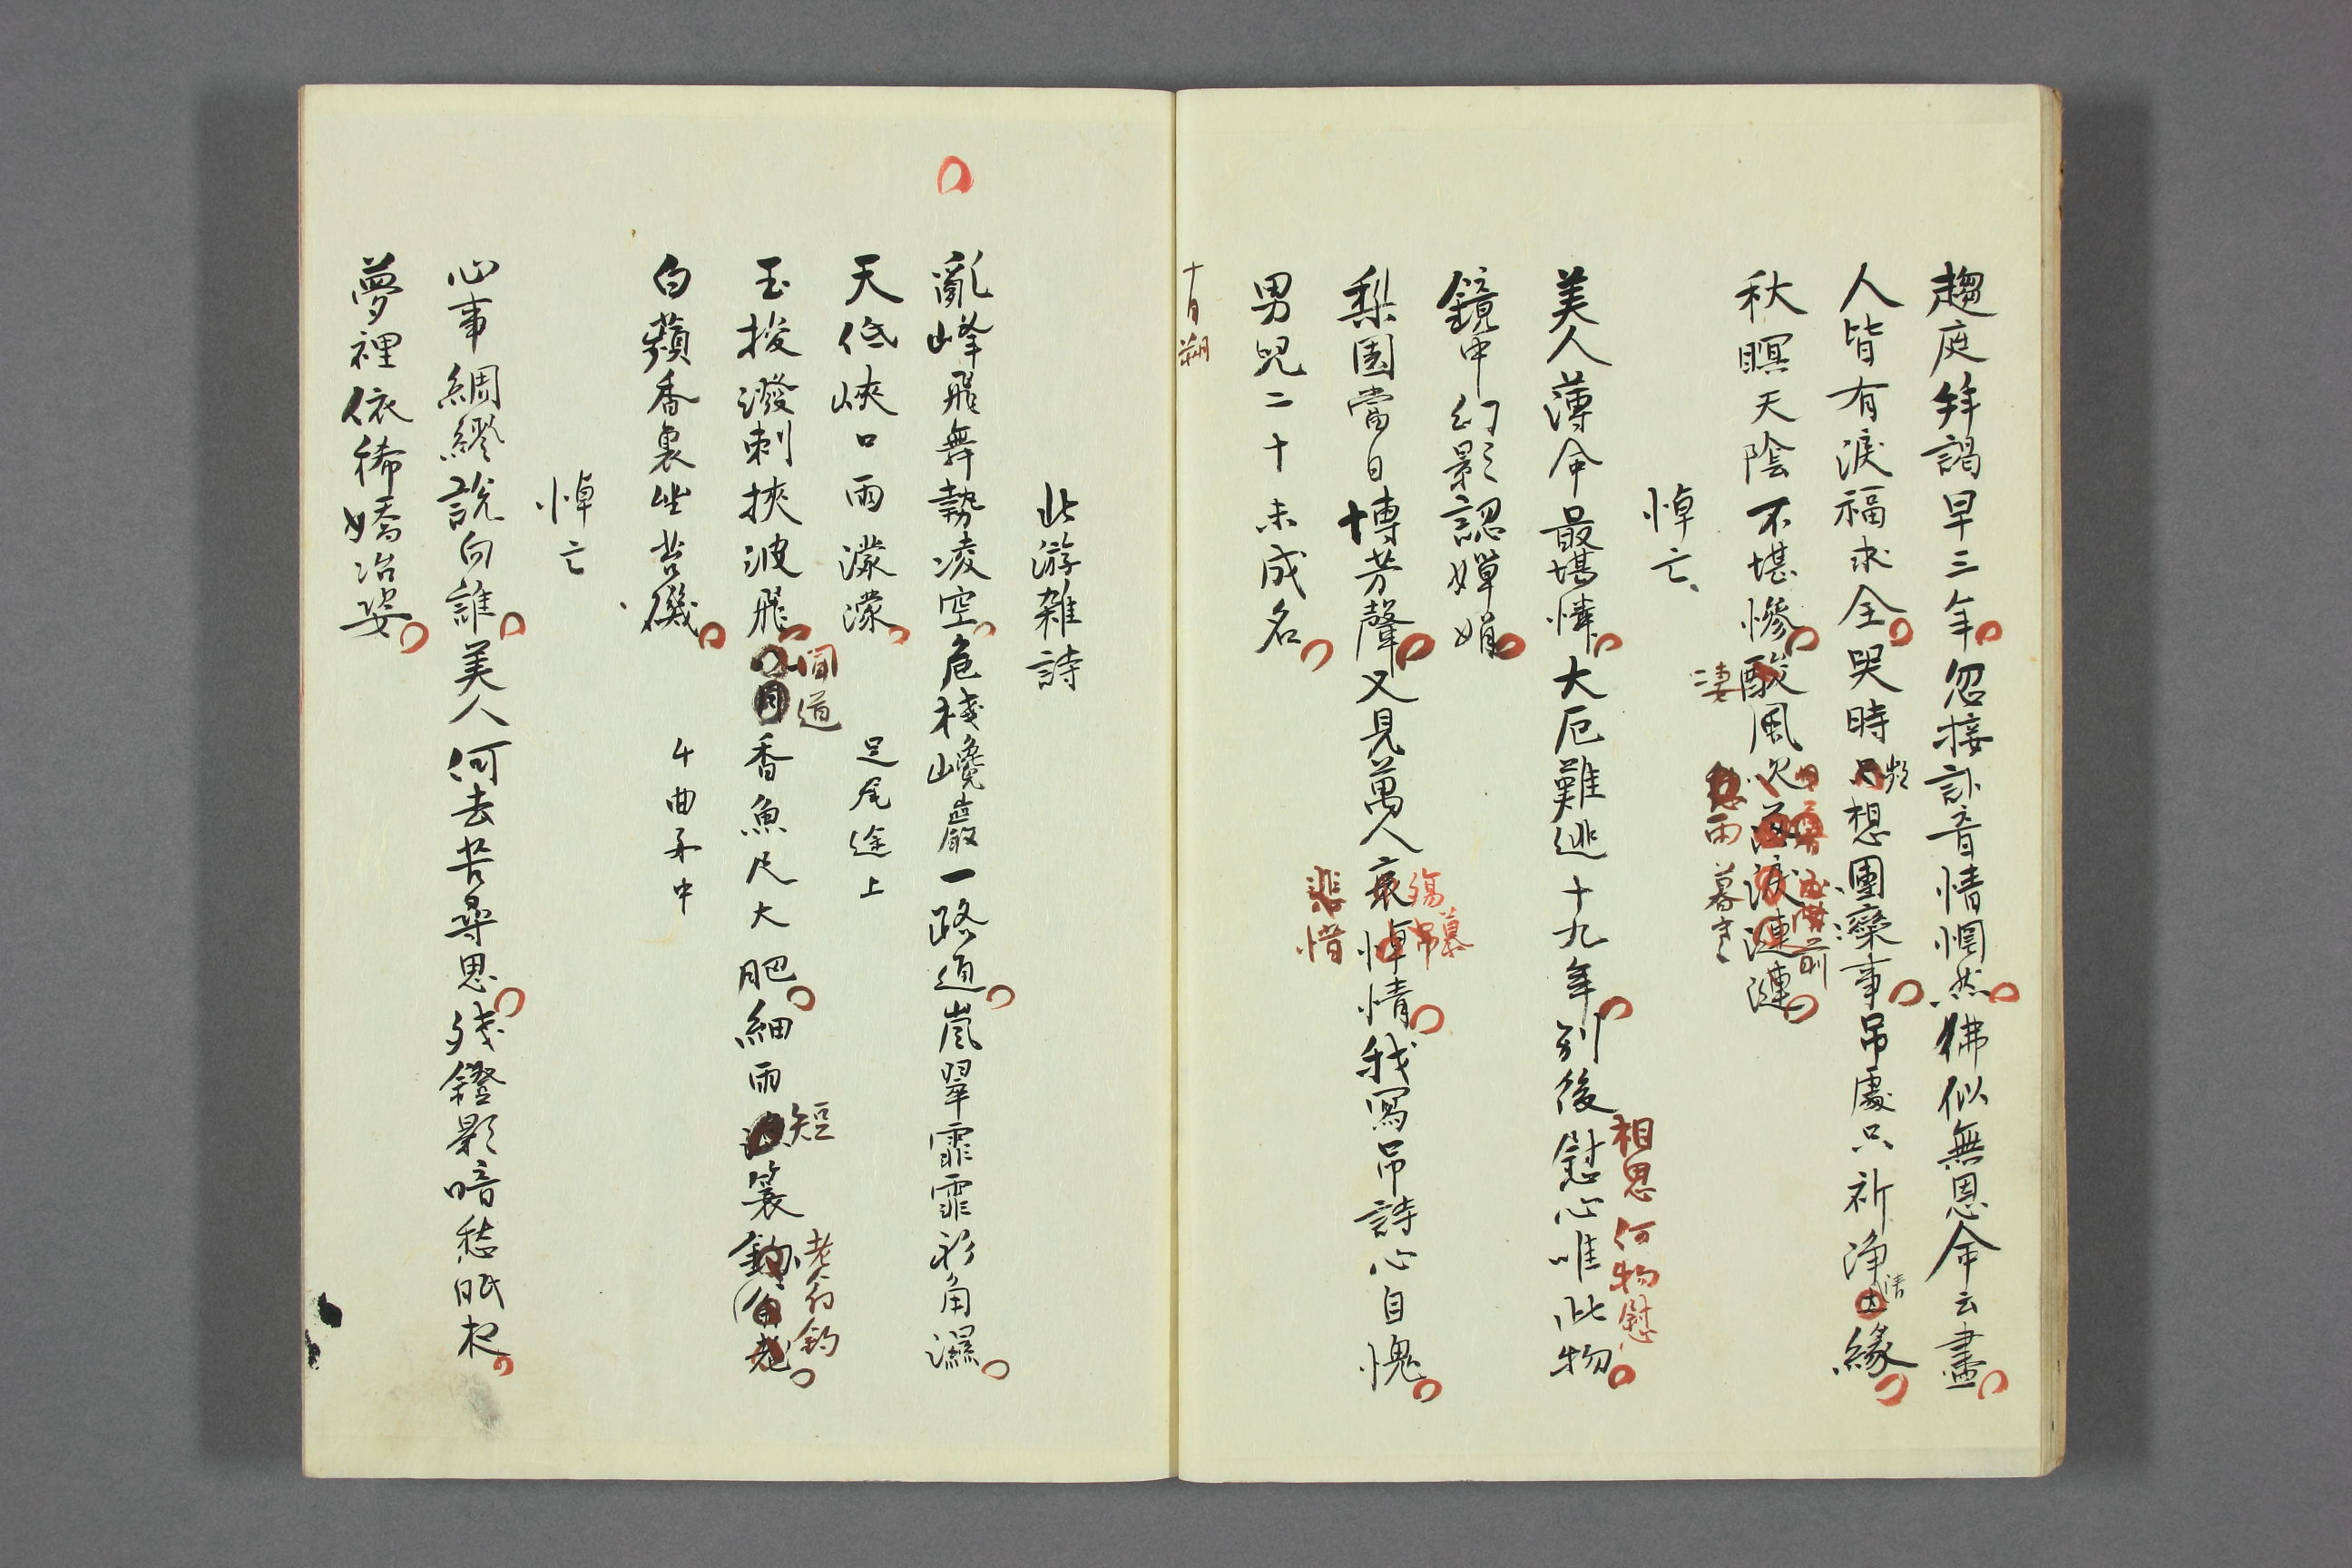 趨庭拜謁早三年忽接訃音情惘然彿似無恩命云盡
人皆有淚福求全哭時只想團欒事吊處只祈淨土緣
頻
清
秋瞑天陰不堪慘酸風吹落淚漣漣
凄
雨暮
前
悼亡
美人薄命最堪憐大厄難逃十九年別後慰心唯此物
相思何物慰
鏡中幻影認嬋娟
梨園當日博芳聲又見萬人哀悼情我寫吊詩心自愧
殤慕
吊
悲惜
男兒二十未成名
十月朔
北游雜詩
亂峰飛舞勢凌空危棧巉巖一路通嵐翠霏霏衫角濕
天低峽口雨濛濛
足尾途上
玉梭潑剌挾波飛聞道香魚尺大肥細雨簑
聞道
短
老翁釣
白蘋香裏坐苔磯
悼亡
心事綢繆說向誰美人何去苦尋思殘鐙影暗愁眠夜
夢裡依稀嬌冶姿